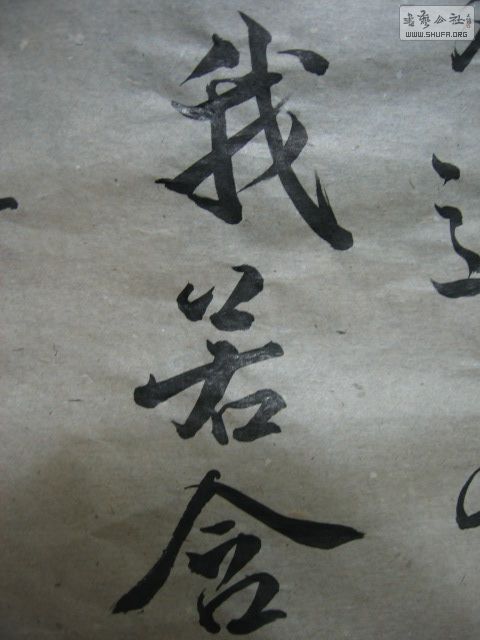 書藝公社
WWW.SHUFA.ORG
我若含